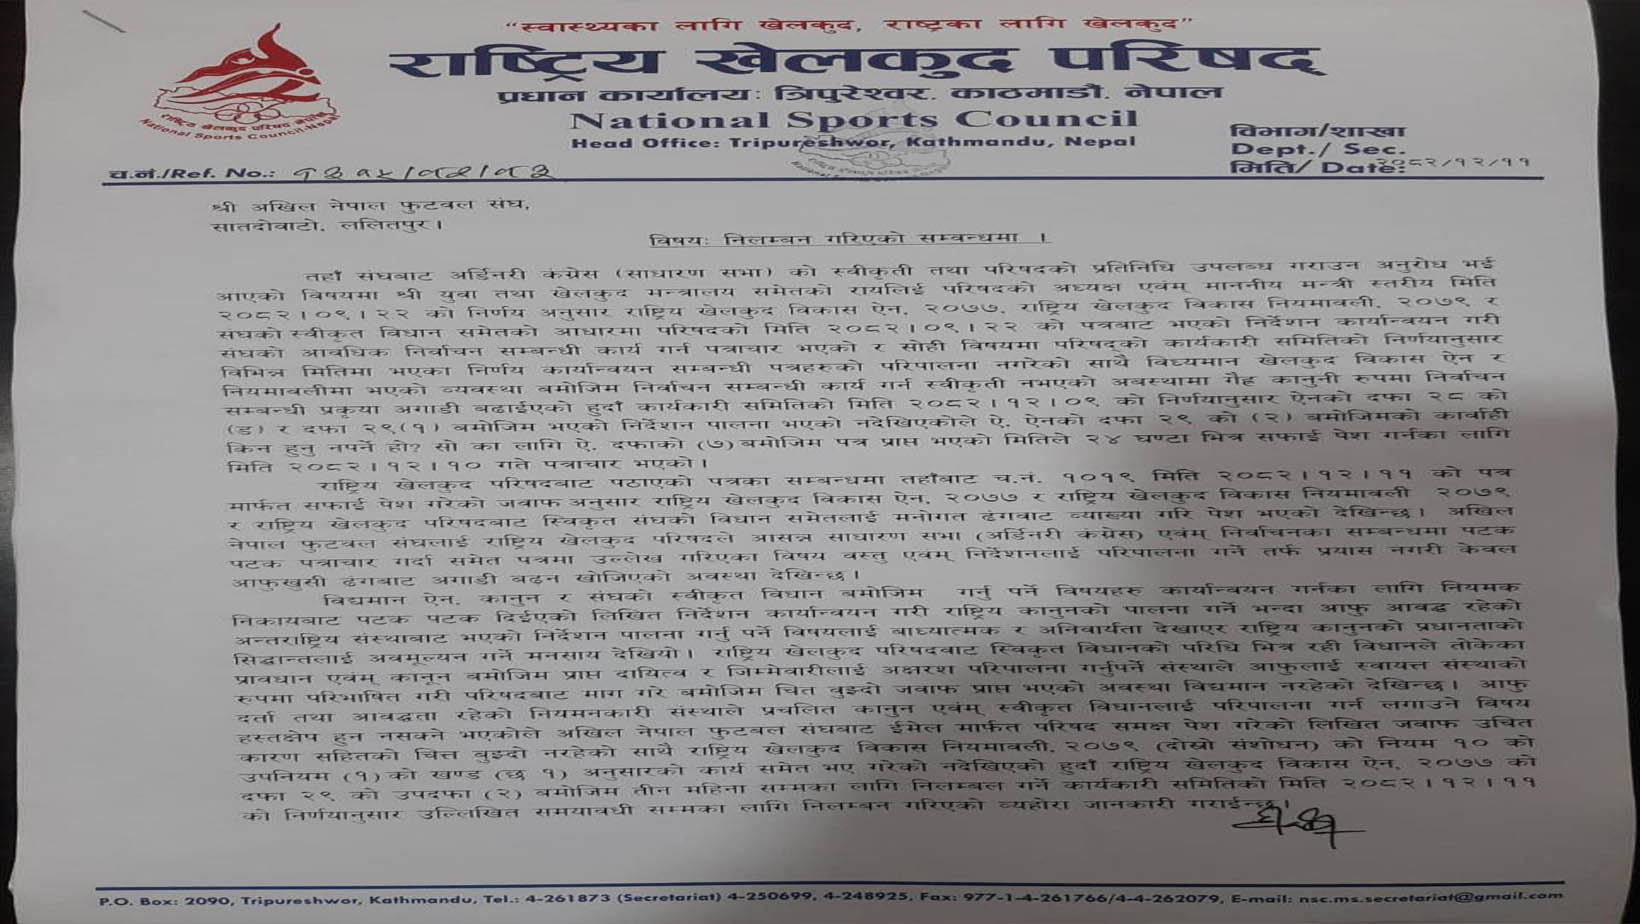 "स्वास्थ्यका लागि खेलकुद, राष्ट्रका लागि खेलकुद"
राष्ट्रिय खेलकुद परिषद्
प्रधान कार्यालय: त्रिपुरेश्वर, काठमाडौं, नेपाल
National Sports Council
Head Office: Tripureshwor, Kathmandu, Nepal
राष्ट्रिय खेलकुद परिषद नेपाल
National Sports Council-Nepal
विभाग/शाखा
Dept./ Sec.
मिति/ Date: २०८२/१२/११
च.नं./Ref. No.:
श्री अखिल नेपाल फुटबल संघ,
सातदोबाटो, ललितपुर।
विषय: निलम्बन गरिएको सम्बन्धमा ।
तहाँ संघबाट अर्डिनरी कंग्रेस (साधारण सभा) को स्वीकृती तथा परिषदको प्रतिनिधि उपलब्ध गराउन अनुरोध भई
आएको विषयमा श्री युवा तथा खेलकुद मन्त्रालय समेतको रायलिई परिषदको अध्यक्ष एवंम् माननीय मन्त्री स्तरीय मिति
२०८२।०९।२२ को निर्णय अनुसार राष्ट्रिय खेलकुद विकास ऐन, २०७७, राष्ट्रिय खेलकुद विकास नियमावली, २०७९ र
संघको स्वीकृत विधान समेतको आधारमा परिषदको मिति २०८२।०९।२२ को पत्रबाट भएको निर्देशन कार्यान्वयन गरी
संघको आवधिक निर्वाचन सम्बन्धी कार्य गर्न पत्राचार भएको र सोही विषयमा परिषद्को कार्यकारी समितिको निर्णयानुसार
विभिन्न मितिमा भएका निर्णय कार्यान्वयन सम्बन्धी पत्रहरुको परिपालना नगरेको साथै विध्यमान खेलकुद विकास ऐन र
नियमावलीमा भएको व्यवस्था बमोजिम निर्वाचन सम्बन्धी कार्य गर्न स्वीकृती नभएको अवस्थामा गैह्र कानुनी रुपमा निर्वाचन
सम्बन्धी प्रकृया अगाडी बढाईएको हुदाँ कार्यकारी समितिको मिति २०८२।१२।०९ को निर्णयानुसार ऐनको दफा २८ को
(ङ) र दफा २९(१) बमोजिम भएको निर्देशन पालना भएको नदेखिएकोले ऐ. ऐनको दफा २९ को (२) बमोजिमको कार्वाही
किन हुनु नपर्ने हो? सो का लागि ऐ. दफाको (७) बमोजिम पत्र प्राप्त भएको मितिले २४ घण्टा भित्र सफाई पेश गर्नका लागि
मिति २०८२।१२।१० गते पत्राचार भएको।
राष्ट्रिय खेलकुद परिषदबाट पठाएको पत्रका सम्बन्धमा तहाँबाट च.नं. १०१९ मिति २०८२।१२।११ को पत्र
मार्फत सफाई पेश गरेको जवाफ अनुसार राष्ट्रिय खेलकुद विकास ऐन, २०७७ र राष्ट्रिय खेलकुद विकास नियमावली २०७९
र राष्ट्रिय खेलकुद परिषदबाट स्विकृत संघको विधान समेतलाई मनोगत ढंगबाट व्याख्या गरि पेश भएको देखिन्छ। अखिल
नेपाल फुटबल संघलाई राष्ट्रिय खेलकुद परिषदले आसन्न साधारण सभा (अर्डिनरी कंग्रेस) एवंम् निर्वाचनका सम्बन्धमा पटक
पटक पत्राचार गर्दा समेत पत्रमा उल्लेख गरिएका विषय वस्तु एवम् निर्देशनलाई परिपालना गर्ने तर्फ प्रयास नगरी केवल
आफुखुसी ढंगबाट अगाडी बढ्न खोजिएको अवस्था देखिन्छ।
विद्यमान ऐन, कानुन र संघको स्वीकृत विधान बमोजिम गर्नु पर्ने विषयहरु कार्यान्वयन गर्नका लागि नियमक
निकायबाट पटक पटक दिईएको लिखित निर्देशन कार्यान्वयन गरी राष्ट्रिय कानुनको पालना गर्ने भन्दा आफु आवद्ध रहेको
अन्तराष्ट्रिय संस्थाबाट भएको निर्देशन पालना गर्नु पर्ने विषयलाई बाध्यात्मक र अनिवार्यता देखाएर राष्ट्रिय कानुनको प्रधानताको
सिद्धान्तलाई अवमूल्यन गर्ने मनसाय देखियो। राष्ट्रिय खेलकुद परिषदबाट स्विकृत विधानको परिधि भित्र रही विधानले तोकेका
प्रावधान एवंम् कानून बमोजिम प्राप्त दायित्व र जिम्मेवारीलाई अक्षरश परिपालना गर्नुपर्ने संस्थाले आफुलाई स्वायत्त संस्थाको
रुपमा परिभाषित गरी परिषदबाट माग गरे बमोजिम चित्त बुझ्दो जवाफ प्राप्त भएको अवस्था विद्यमान नरहेको देखिन्छ। आफु
दर्ता तथा आवद्धता रहेको नियमनकारी संस्थाले प्रचलित कानुन एवंम् स्वीकृत विधानलाई परिपालना गर्न लगाउने विषय
हस्तक्षेप हुन नसक्ने भएकोले अखिल नेपाल फुटबल संघबाट ईमेल मार्फत परिषद समक्ष पेश गरेको लिखित जवाफ उचित
कारण सहितको चित्त बुझ्दो नरहेको साथै राष्ट्रिय खेलकुद विकास नियमावली, २०७९ (दोस्रो संशोधन) को नियम १० को
उपनियम (१) को खण्ड (छ १) अनुसारको कार्य समेत भए गरेको नदेखिएको हुदाँ राष्ट्रिय खेलकुद विकास ऐन, २०७७ को
दफा २९ को उपदफा (२) बमोजिम तीन महिना सम्मका लागि निलम्बल गर्ने कार्यकारी समितिको मिति २०८२।१२।११
को निर्णयानुसार उल्लिखित समयावधी सम्मका लागि निलम्बन गरिएको व्यहोरा जानकारी गराईन्छ।
P.O. Box: 2090, Tripureshwor, Kathmandu, Tel.: 4-261873 (Secretariat) 4-250699, 4-248925, Fax: 977-1-4-261766/4-4-262079, E-mail: nsc.ms.secretariat@gmail.com